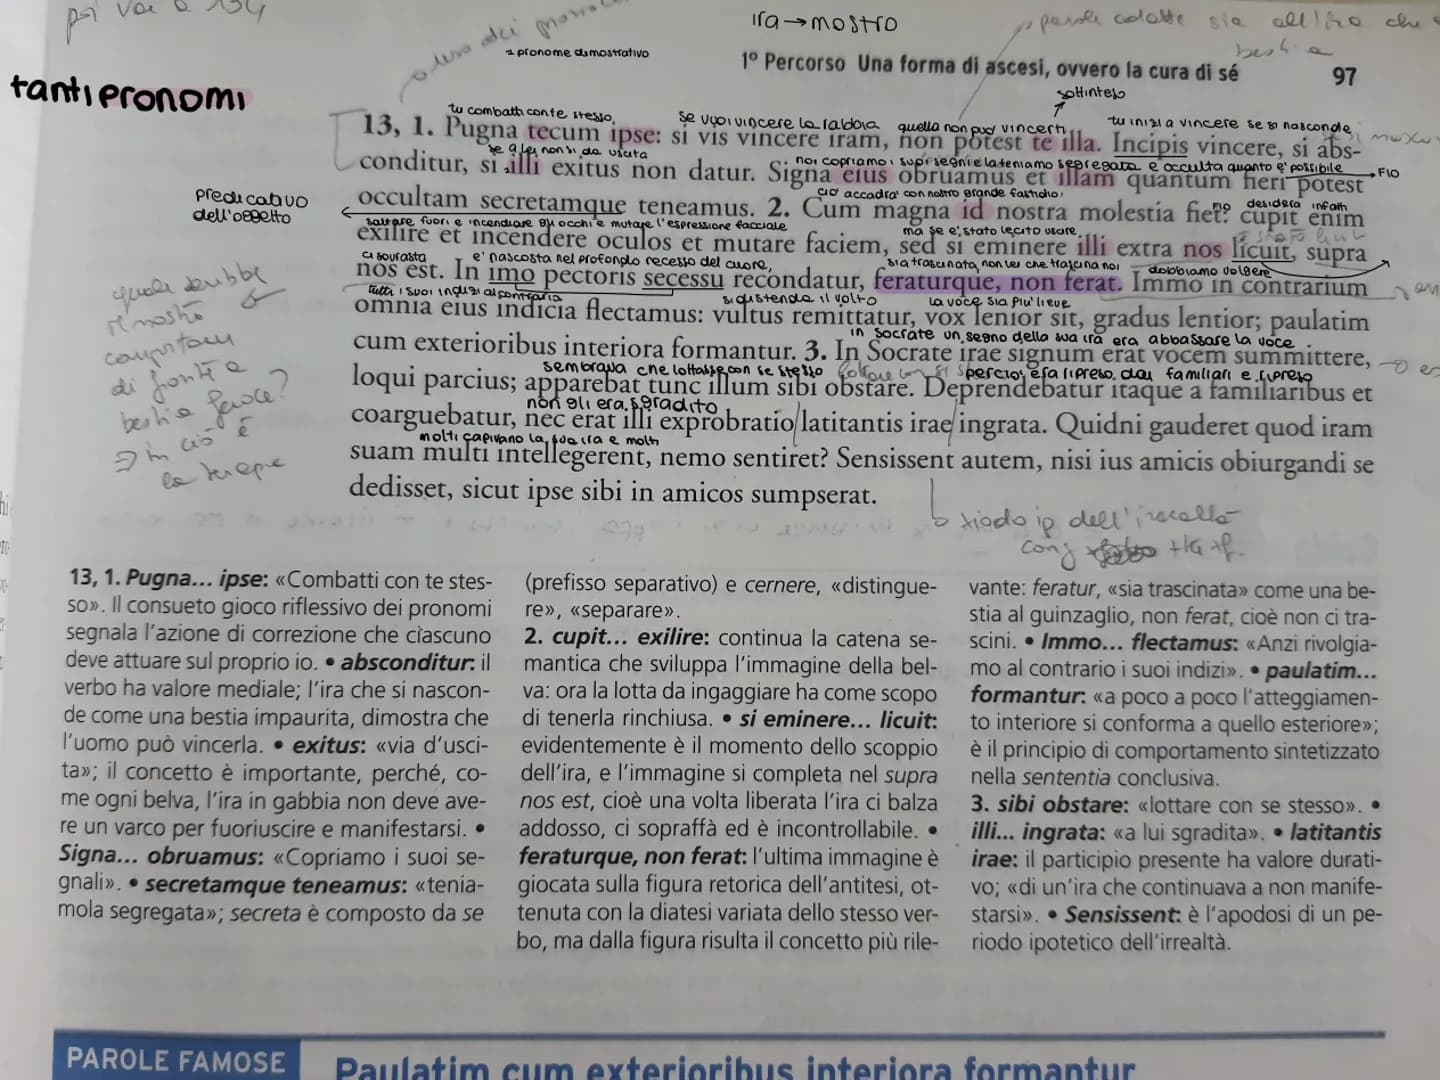 poi vai a 134
ira→mostro
parole adatte sia all'ira che
bestia
1 pronome dimostrativo
1º Percorso Una forma di ascesi, ovvero la cura di sé 97
tanti pronomi
sottinteso
tu combatti con te stesso, se vuoi vincere la rabbia quella non può vincerti tu inizi a vincere se si nasconde
13, 1. Pugna tecum ipse: si vis vincere iram, non potest te illa. Incipis vincere, si abs-
se a lei non si da uscita noi copriamo i suoi segni e la teniamo segregata e occulta quanto è possibile
FIO
conditur, si illi exitus non datur. Signa eius obruamus et illam quantum fieri potest
predicativo
dell'oggetto
ciò accadrà con nostro grande fastidio, desidera infatti
occultam secretamque teneamus. 2. Cum magna id nostra molestia fiet: cupit enim
saltare fuori e incendiare gli occhi e mutare l'espressione facciale ma se è stato lecito uscire
exilire et incendere oculos et mutare faciem, sed si eminere illi extra nos licuit, supra
ci sovrasta è nascosta nel profondo recesso del cuore, sia trascinata, non lei che trascina noi dobbiamo volgere
nos est. In imo pectoris secessu recondatur, feraturque, non ferat. Immo in contrarium
tutti i suoi indizi al contrario si distenda il volto la voce sia più lieve
omnia eius indicia flectamus: vultus remittatur, vox lenior sit, gradus lentior; paulatim
in Socrate un segno della sua ira era abbassare la voce
cum exterioribus interiora formantur. 3. In Socrate irae signum erat vocem summittere,
sembrava che lottasse con se stesso perciò era ripreso dai familiari e ripreso
loqui parcius; apparebat tunc illum sibi obstare. Deprendebatur itaque a familiaribus et
non gli era sgradito
coarguebatur, nec erat illi exprobratio latitantis irae ingrata. Quidni gauderet quod iram
molti capivano la sua ira e molti
suam multi intellegerent, nemo sentiret? Sensissent autem, nisi ius amicis obiurgandi se
dedisset, sicut ipse sibi in amicos sumpserat.
di fronte a
bestia feroce?
⇒ in ciò è
la terapia
dell'irrealtà
cong
13, 1. Pugna... ipse: «Combatti con te stes-
so». Il consueto gioco riflessivo dei pronomi
segnala l'azione di correzione che ciascuno
deve attuare sul proprio io. • absconditur: il
verbo ha valore mediale; l'ira che si nascon-
de come una bestia impaurita, dimostra che
l'uomo può vincerla. • exitus: «via d'usci-
ta»; il concetto è importante, perché, co-
me ogni belva, l'ira in gabbia non deve ave-
re un varco per fuoriuscire e manifestarsi. •
Signa... obruamus: «Copriamo i suoi se-
gnali». • secretamque teneamus: «tenia-
mola segregata»; secreta è composto da se
(prefisso separativo) e cernere, «distingue-
re», «separare».
2. cupit... exilire: continua la catena se-
mantica che sviluppa l'immagine della bel-
va: ora la lotta da ingaggiare ha come scopo
di tenerla rinchiusa. • si eminere... licuit:
evidentemente è il momento dello scoppio
dell'ira, e l'immagine si completa nel supra
nos est, cioè una volta liberata l'ira ci balza
addosso, ci sopraffà ed è incontrollabile. •
feraturque, non ferat: l'ultima immagine è
giocata sulla figura retorica dell'antitesi, ot-
tenuta con la diatesi variata dello stesso ver-
bo, ma dalla figura risulta il concetto più rile-
vante: feratur, «sia trascinata» come una be-
stia al guinzaglio, non ferat, cioè non ci tra-
scini. • Immo... flectamus: «Anzi rivolgia-
mo al contrario i suoi indizi». • paulatim...
formantur: «a poco a poco l'atteggiamen-
to interiore si conforma a quello esteriore»;
è il principio di comportamento sintetizzato
nella sententia conclusiva.
3. sibi obstare: «lottare con se stesso». •
illi... ingrata: «a lui sgradita». • latitantis
irae: il participio presente ha valore durati-
vo; «di un'ira che continuava a non manife-
starsi». • Sensissent: è l'apodosi di un pe-
riodo ipotetico dell'irrealtà.
PAROLE FAMOSE Paulatim cum exterioribus interiora formantur